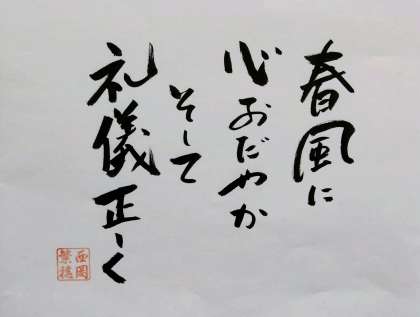 春風に
心おだやか
そして
礼儀正しく